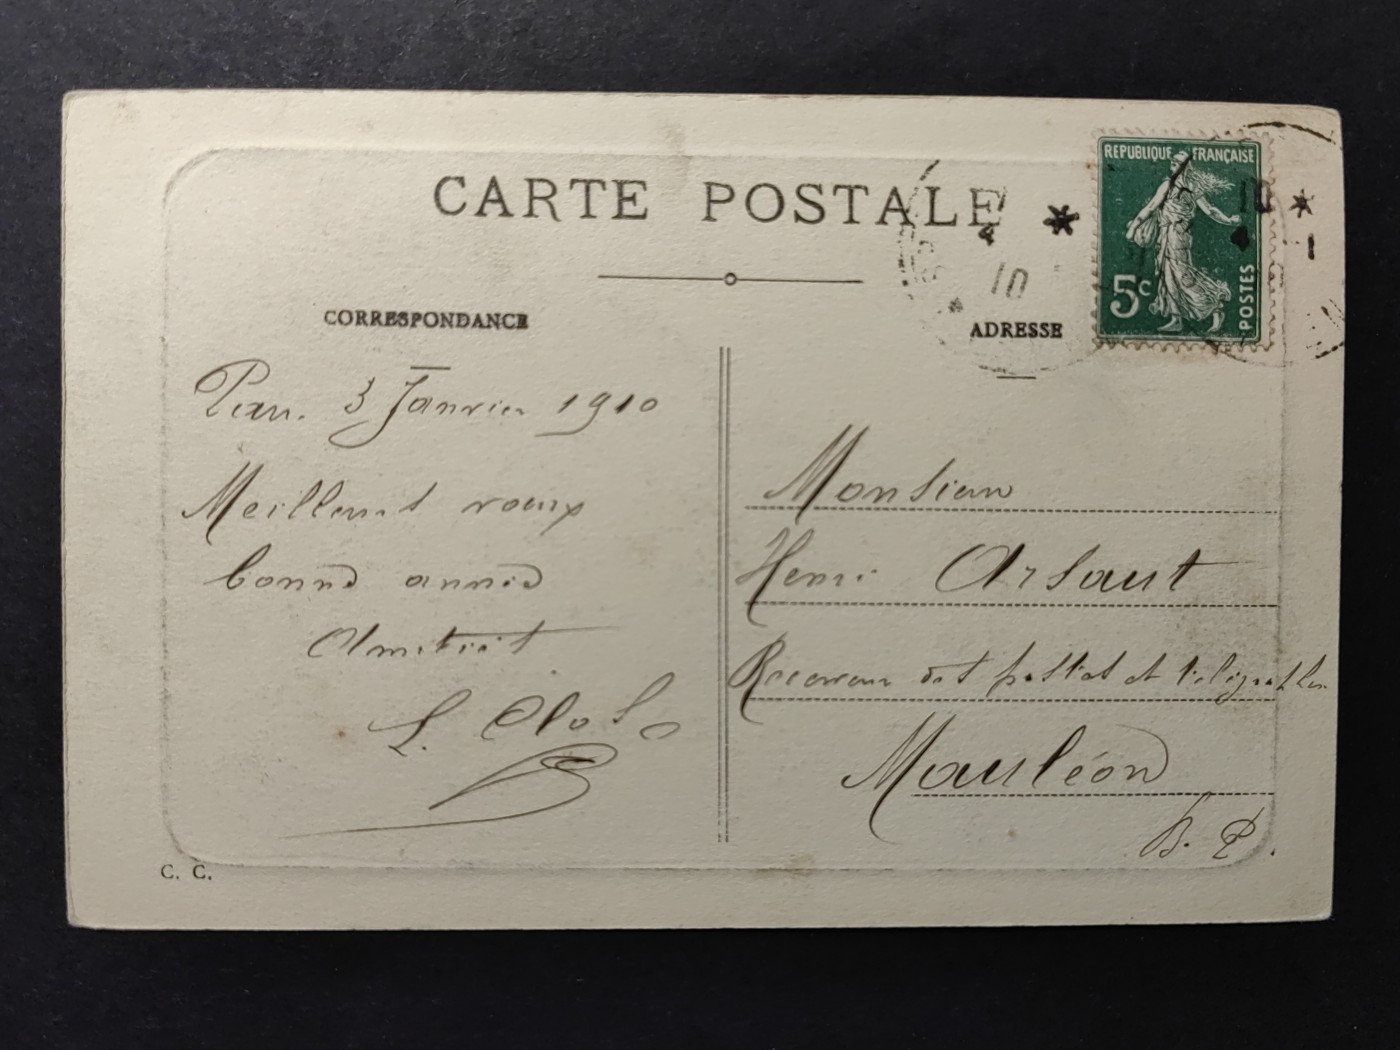 CARTE POSTALE
CORRESPONDANCE
Pau. 3 Janvier 1910
Meilleurs voeux
bonne année
Amitiés
L.
C. C.
REPUBLIQUE FRANÇAISE
5c
POSTES
10
4
10
4
1
ADRESSE
Monsieur
Henri Arsaut
Receveur des postes et télégraphes
Mauléon
B. P.